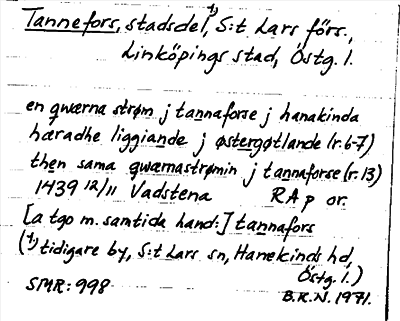 Tannefors, stadsdel,¹) S:t Lars förs.,
Linköpings stad, Östg. l.
en qwærna strøm j tannaforse j hanakinda
hæradhe liggiande j østergøtlande (r. 6-7)
then sama qwærnastrømin j tannaforse (r. 13)
1439 12/11 Vadstena RA p or.
[a tgo m. samtida hand:] tannafors
(¹) tidigare by, S:t Lars sn, Hanekinds hd,
Östg. l.)
SMR: 998
B.R.N. 1971.